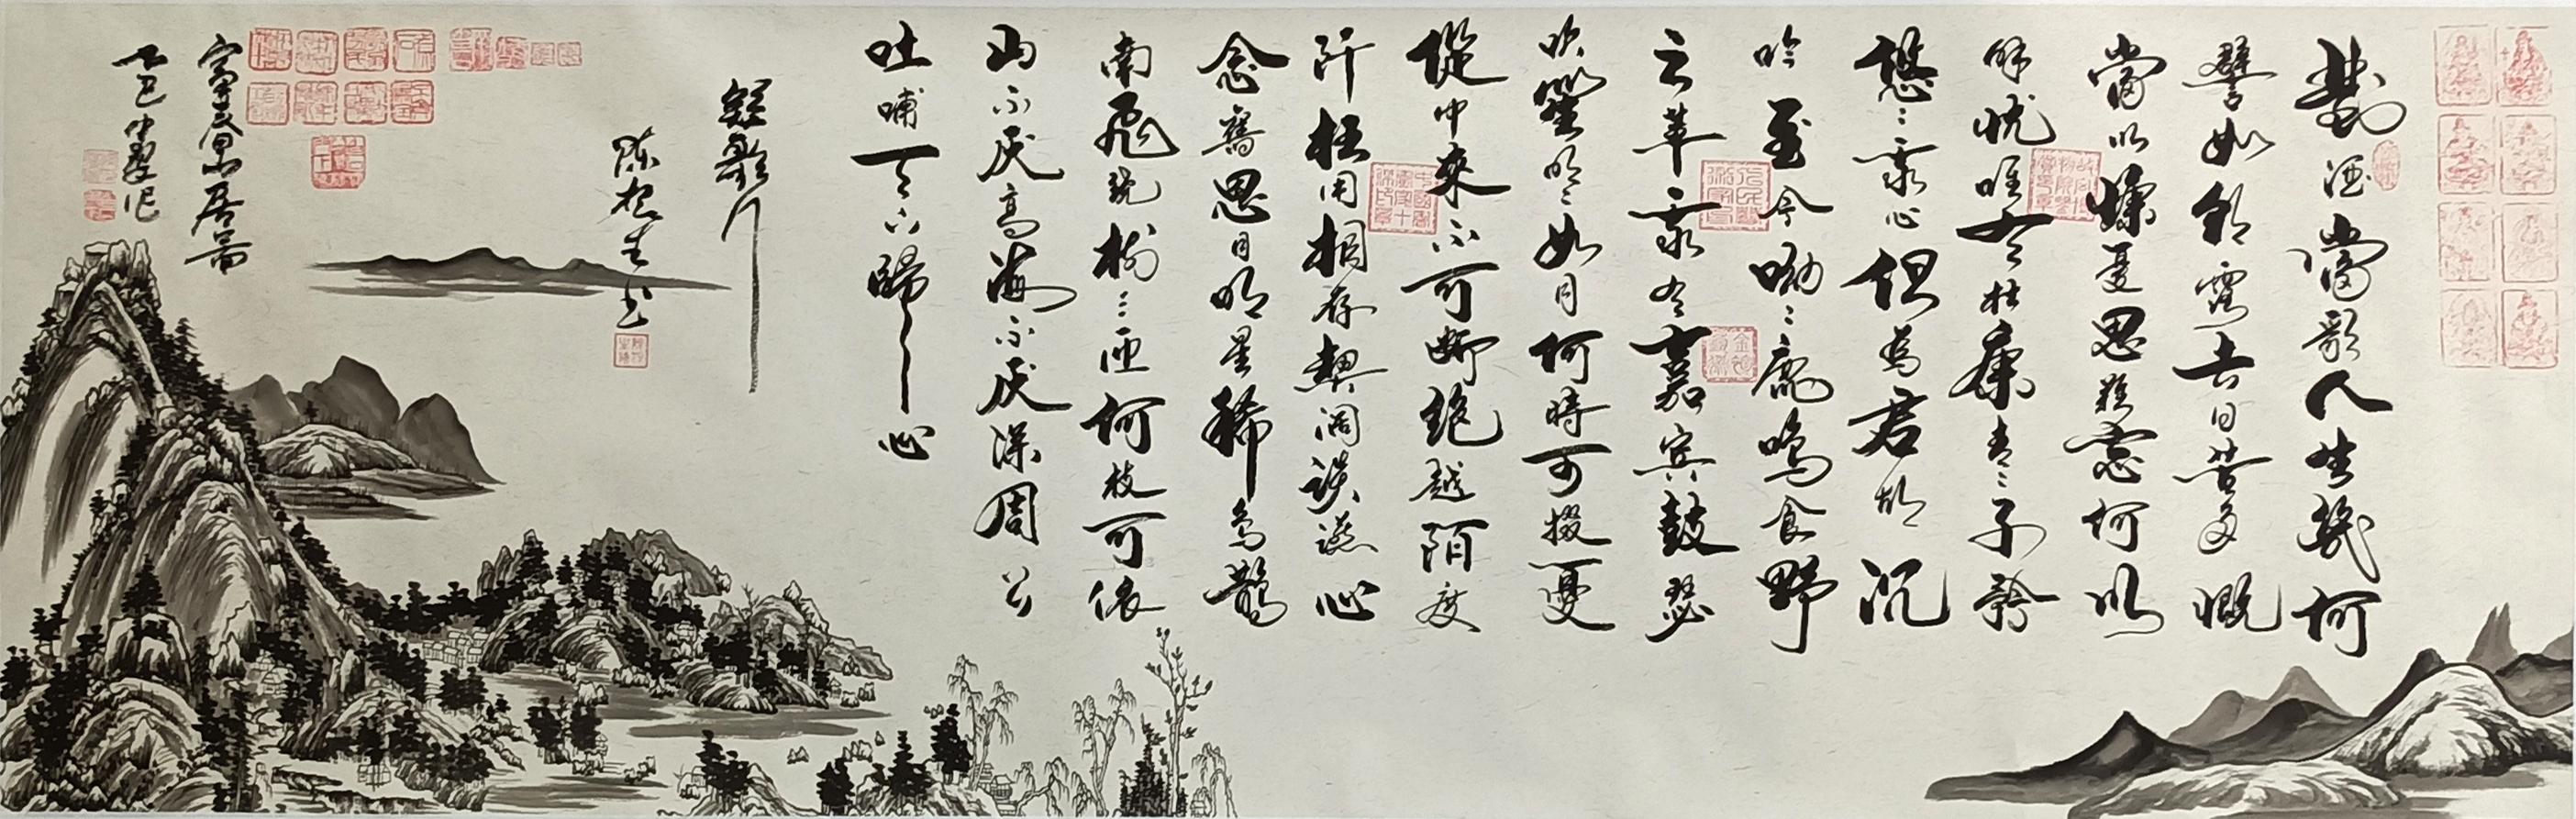 對酒當歌人生幾何
譬如朝露去日苦多慨
當以慷憂思難忘何以
解忧唯有杜康青〻子衿
悠〻我心但為君故沉
吟至今呦〻鹿鳴食野
之苹我有嘉賓鼓瑟
吹笙明〻如月何時可掇憂
從中來不可断绝越陌度
阡枉用相存契阔談讌心
念舊恩月明星稀烏鵲
南飛繞樹三匝何枝可依
山不厌高海不厌深周公
吐哺天下歸心
短歌行
陈根生书
富春山居图
乙巳中夏作